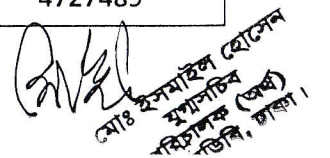 4727489
মোঃ ইসমাইল হোসেন
যুগ্মসচিব
পরিচালক (অর্থ)
ঢাকা।